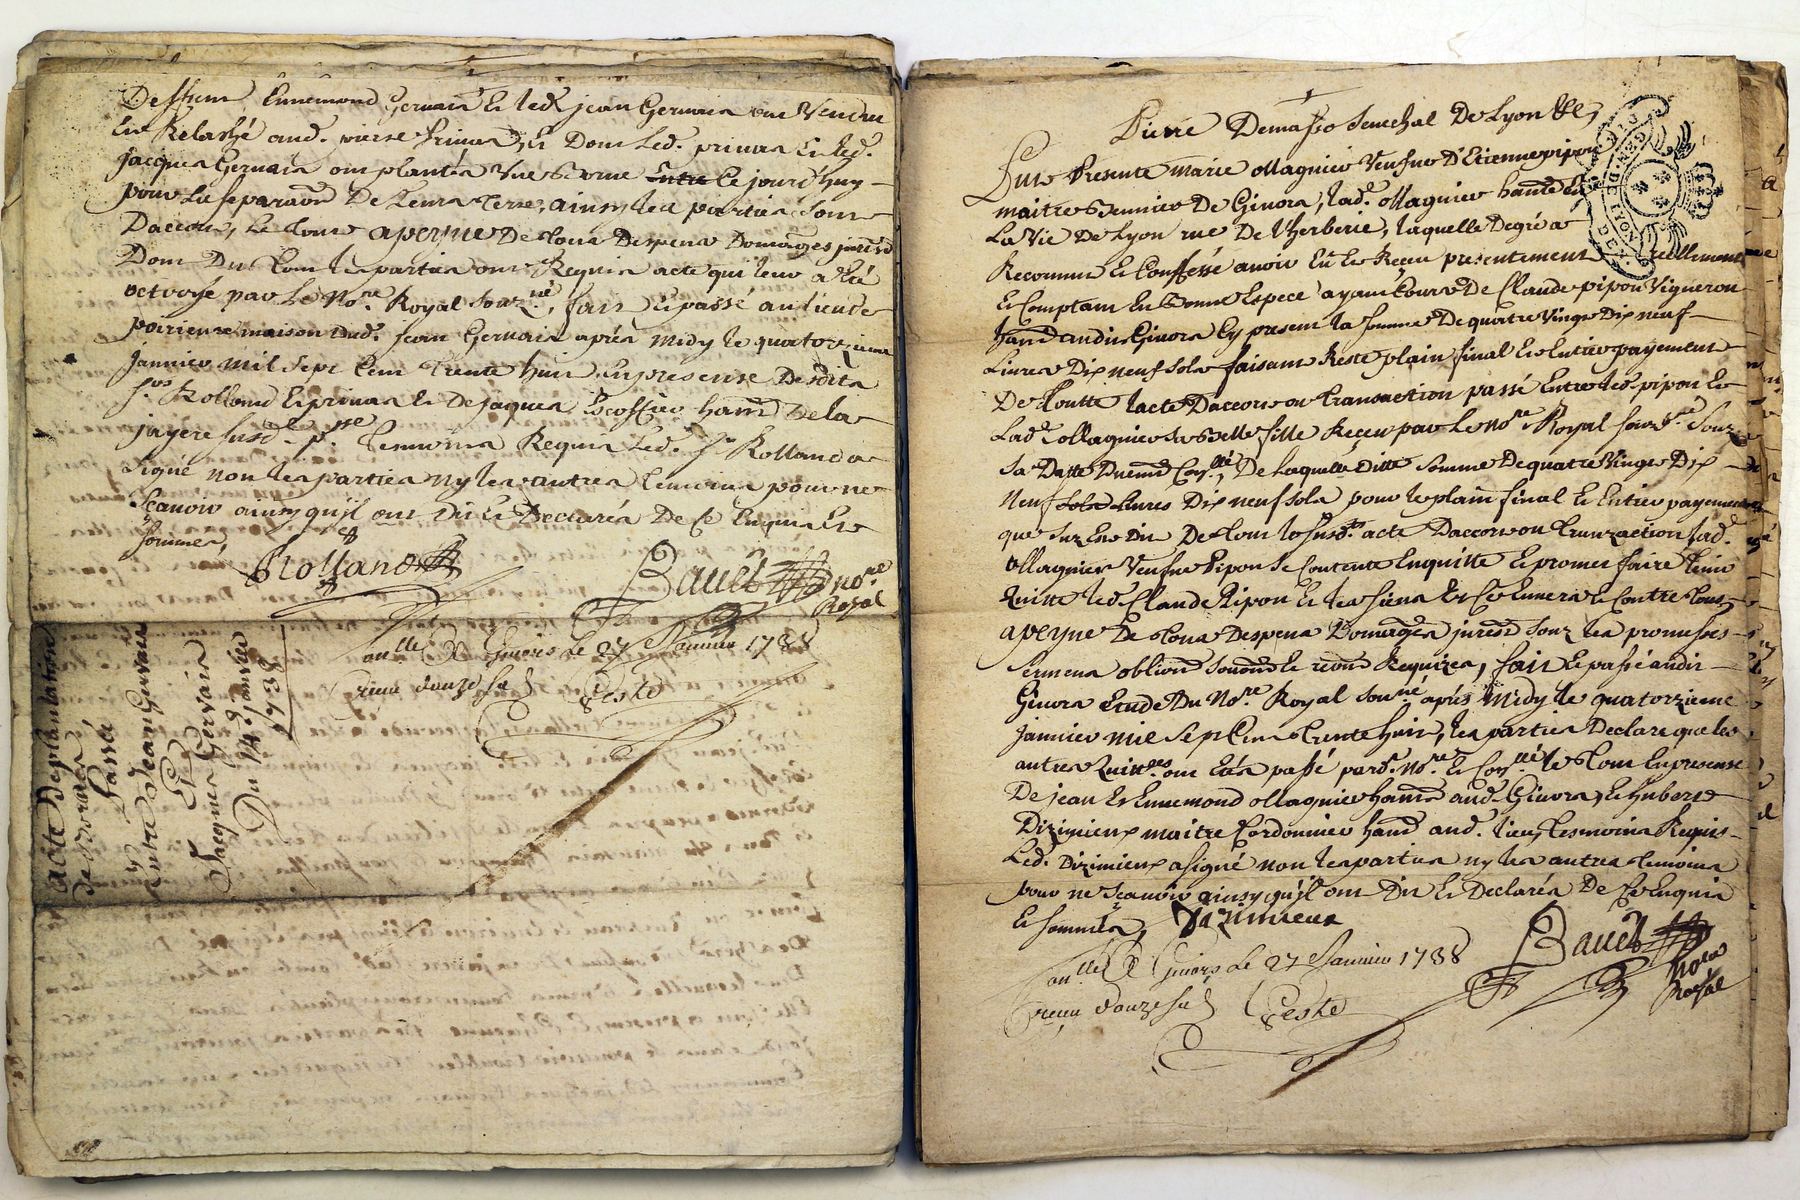 Deffunt Ennemond Gervais & led. jean Gervais ont Vendu
Et Relasché aud. pierre primas, Et Dont Led. primas Et led.
jacques Gervais ont plantés Une Borne Entre Ce jourd'huy
pour La separaõn De Leurs Terre, ainsy les parties sont
Daccors, Le tout apeyne De tous Despens Domages jntérés
Dont Du tout les parties ont Requis acte qui leur a Eté
octroyé par Le No.re Royal souz.né, fait & passé au lieu de
maison dud. jean Gervais après midy le quatorzieme
janvier mil sept Cent trente huit En presense Desdits
s.rs Rolland & primas Et De jaques Escoffier hant De la
jayere susd. p.sse Temoins Requis Led. s.r Rolland a
signé non les parties ny les autres temoins pour ne
scavoir ainsy qu'jl ont Dit Et Declarés De Ce Enquis Et
sommés,
Rolland
Bauet no.re
Royal
con.llé A Givors Le 27 Janvier 1738
receu douze sols Peste
acte De plantation
de Bornes
Passé
Entre Jean Gervais
Et
Jacques Gervais
Du 14.e janvier
1738
Pierre Demasso senechal De Lyon &c,
Fut Presente marie ollagnier Veufve D'Etienne pipon
maitre De Givors, lad. ollagnier hantte En
La Vie De Lyon rue De l'herberie, laquelle De gré a
Reconnu & Confessé avoir Eu & Receu presentement reellement
& Comptant En bonne Espece ayant Cours De Claude pipon Vigneron
hant audit Givors Cy present la somme De quatre Vingt Dix neuf
Livres Dix neuf sols faisant Reste plain final Et Entier payement
De toutte lacte Daccors ou transaction passé Entre led. pipon Et
Lad. ollagnier sa Belle fille Receu par Le No.re Royal souz.né souz
sa Datte Duement Con.llé, De laquelle Ditte somme De quatre Vingt Dix
neuf sols Livres Dix neuf sols pour le plain final & Entier payement
que suz Est Dit De tout le susd. acte Daccors ou Trunzaction lad.
ollagnier Veufve Pipon se Contente En quitte & promet faire tenir
Quitte led. Claude Pipon Et les siens Et Envers & Contre tous,
apeyne De tous Despens Domages jnterét souz les promesses
sermens obligõns soumõns & renõns Requizes, fait & passé audit
Givors Etude Du No.re Royal sou.né après Midy le quatorzieme
janvier mil sept Cent trente huit, les parties Declare que les
autres Quitt.ces ont Etés passé pard. No.re & Con.llé le tout En presense
De jean Et Ennemond ollagnier hants aud. Givors, & huberd
Dizimieux maitre Cordonnier hant aud. lieu, Tesmoins Requis
Led. Dizimieux a signé non les parties ny les autres temoins
pour ne scavoir ainsy qu'jl ont Dit Et Declarés De Ce Enquis
& sommés, Dizimieux
Bauet No.re
Royal
con.llé A Givors Le 27 Janvier 1738
receu douze sols Peste
GEN. DE LYON